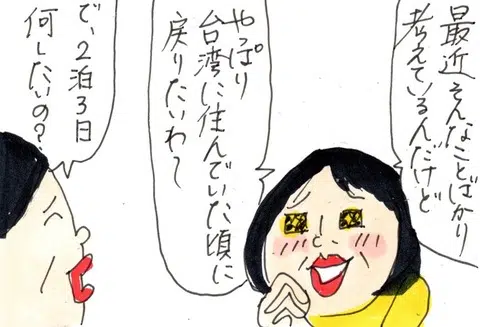 最近そんなことばかり
考えているんだけど
やっぱり
台湾に住んでいた頃に
戻りたいわ〜
で、2泊3日
何したいの?